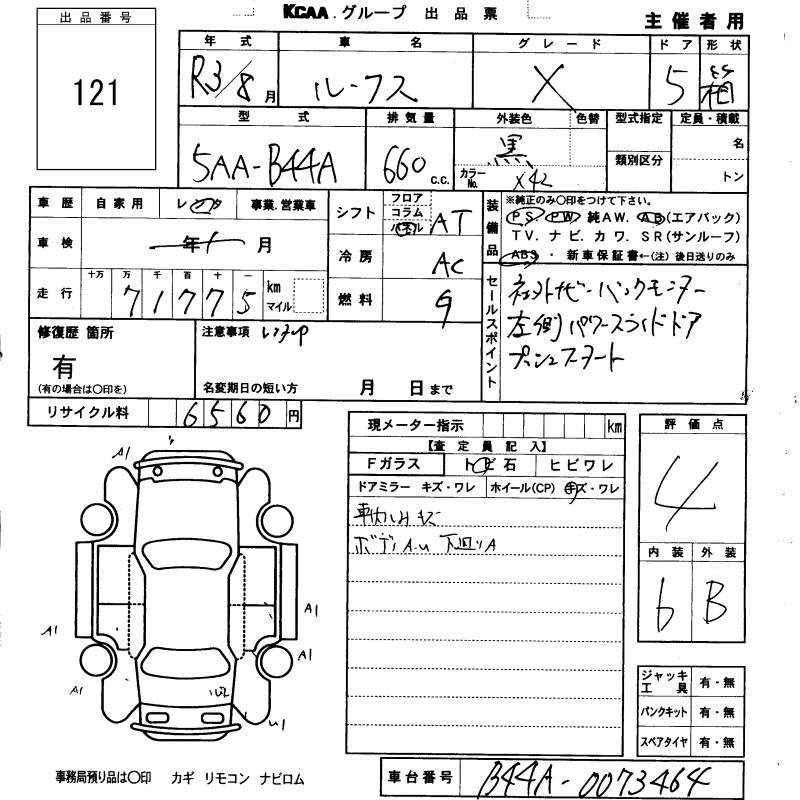 KCAA.グループ 出品票
主催者用
出品番号
121
年式 車名 グレード ドア 形状
R3/8月 ルークス X 5 箱
型式 排気量 外装色 色替 型式指定 定員・積載
5AA-B44A 660 c.c. 黒 類別区分 名
カラーNo. X42 トン
車歴 自家用 レンタ 事業.営業車
車検 年 月
走行 十万 万 千 百 十 一
7 1 7 7 5 km マイル
シフト フロア コラム パネル AT
冷房 AC
燃料 G
装備品
※純正のみ〇印をつけて下さい。
PS. PW 純AW. AB(エアバック)
TV. ナビ. カワ. SR(サンルーフ)
ABS ・ 新車保証書←(注) 後日送りのみ
セールスポイント
左側パワースライドドア
プッシュスタート
修復歴 箇所
有
(有の場合は〇印を)
注意事項 レンタUP
名変期日の短い方 月 日まで
リサイクル料 6560円
現メーター指示 km
【査定員記入】
Fガラス トビ石 ヒビワレ
ドアミラー キズ・ワレ ホイール(CP) キズ・ワレ
車内ハリキズ
ボディA.U 下廻りA
評価点
4
内装 外装
6 B
A1
A1
A1
A1
A1
U1
ジャッキ工具 有・無
パンクキット 有・無
スペアタイヤ 有・無
事務局預り品は〇印 カギ リモコン ナビロム
車台番号 B44A-0073464